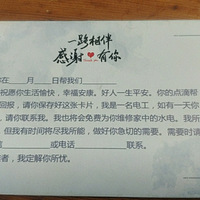 一路相伴
感谢❤有你
Thank you
在___月___日帮我们
祝愿你生活愉快，幸福安康。好人一生平安。你的点滴帮
回报，请你保存好这张卡片，我是一名电工，如有一天你
，请你联系我。我也将会免费为你维修家中的水电。我
但我有时间将尽我所能，做好你急切的需要。需要时请
___或者电话___联系，
者，我定解你所忧。